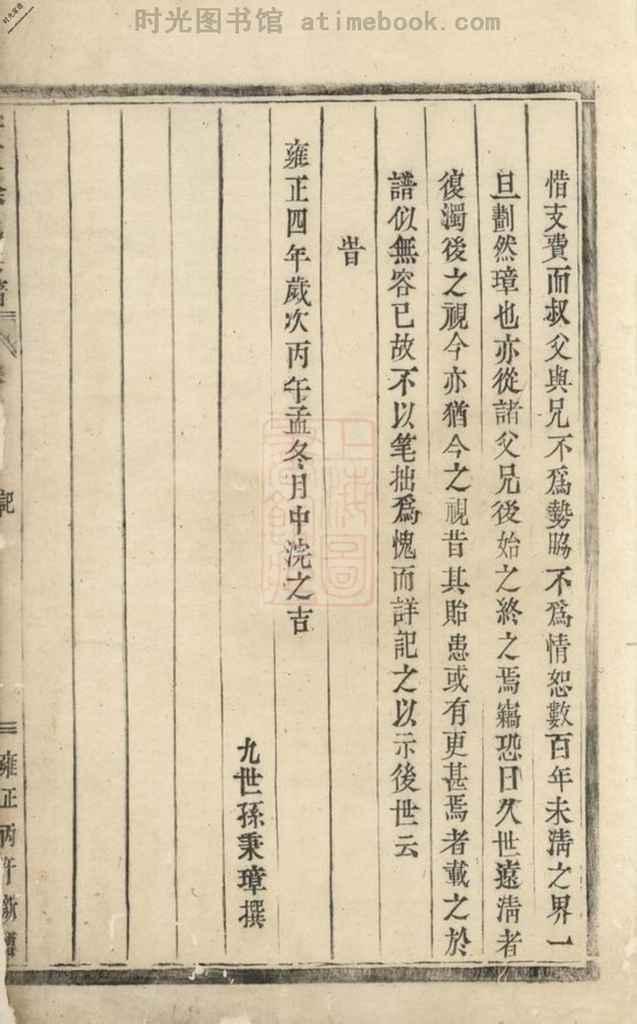 时光图书馆 atimebook.com
惜支費而叔父與兄不爲勢脇不爲情恕數百年未淸之界一
旦劃然璋也亦從諸父兄後始之終之焉竊恐日久世遠淸者
復濁後之視今亦猶今之視昔其貽患或有更甚焉者載之於
譜似無容已故不以笔拙爲愧而詳記之以示後世云
旹
雍正四年歲次丙午孟冬月中浣之吉
九世孫秉璋撰
記
雍正丙午新譜